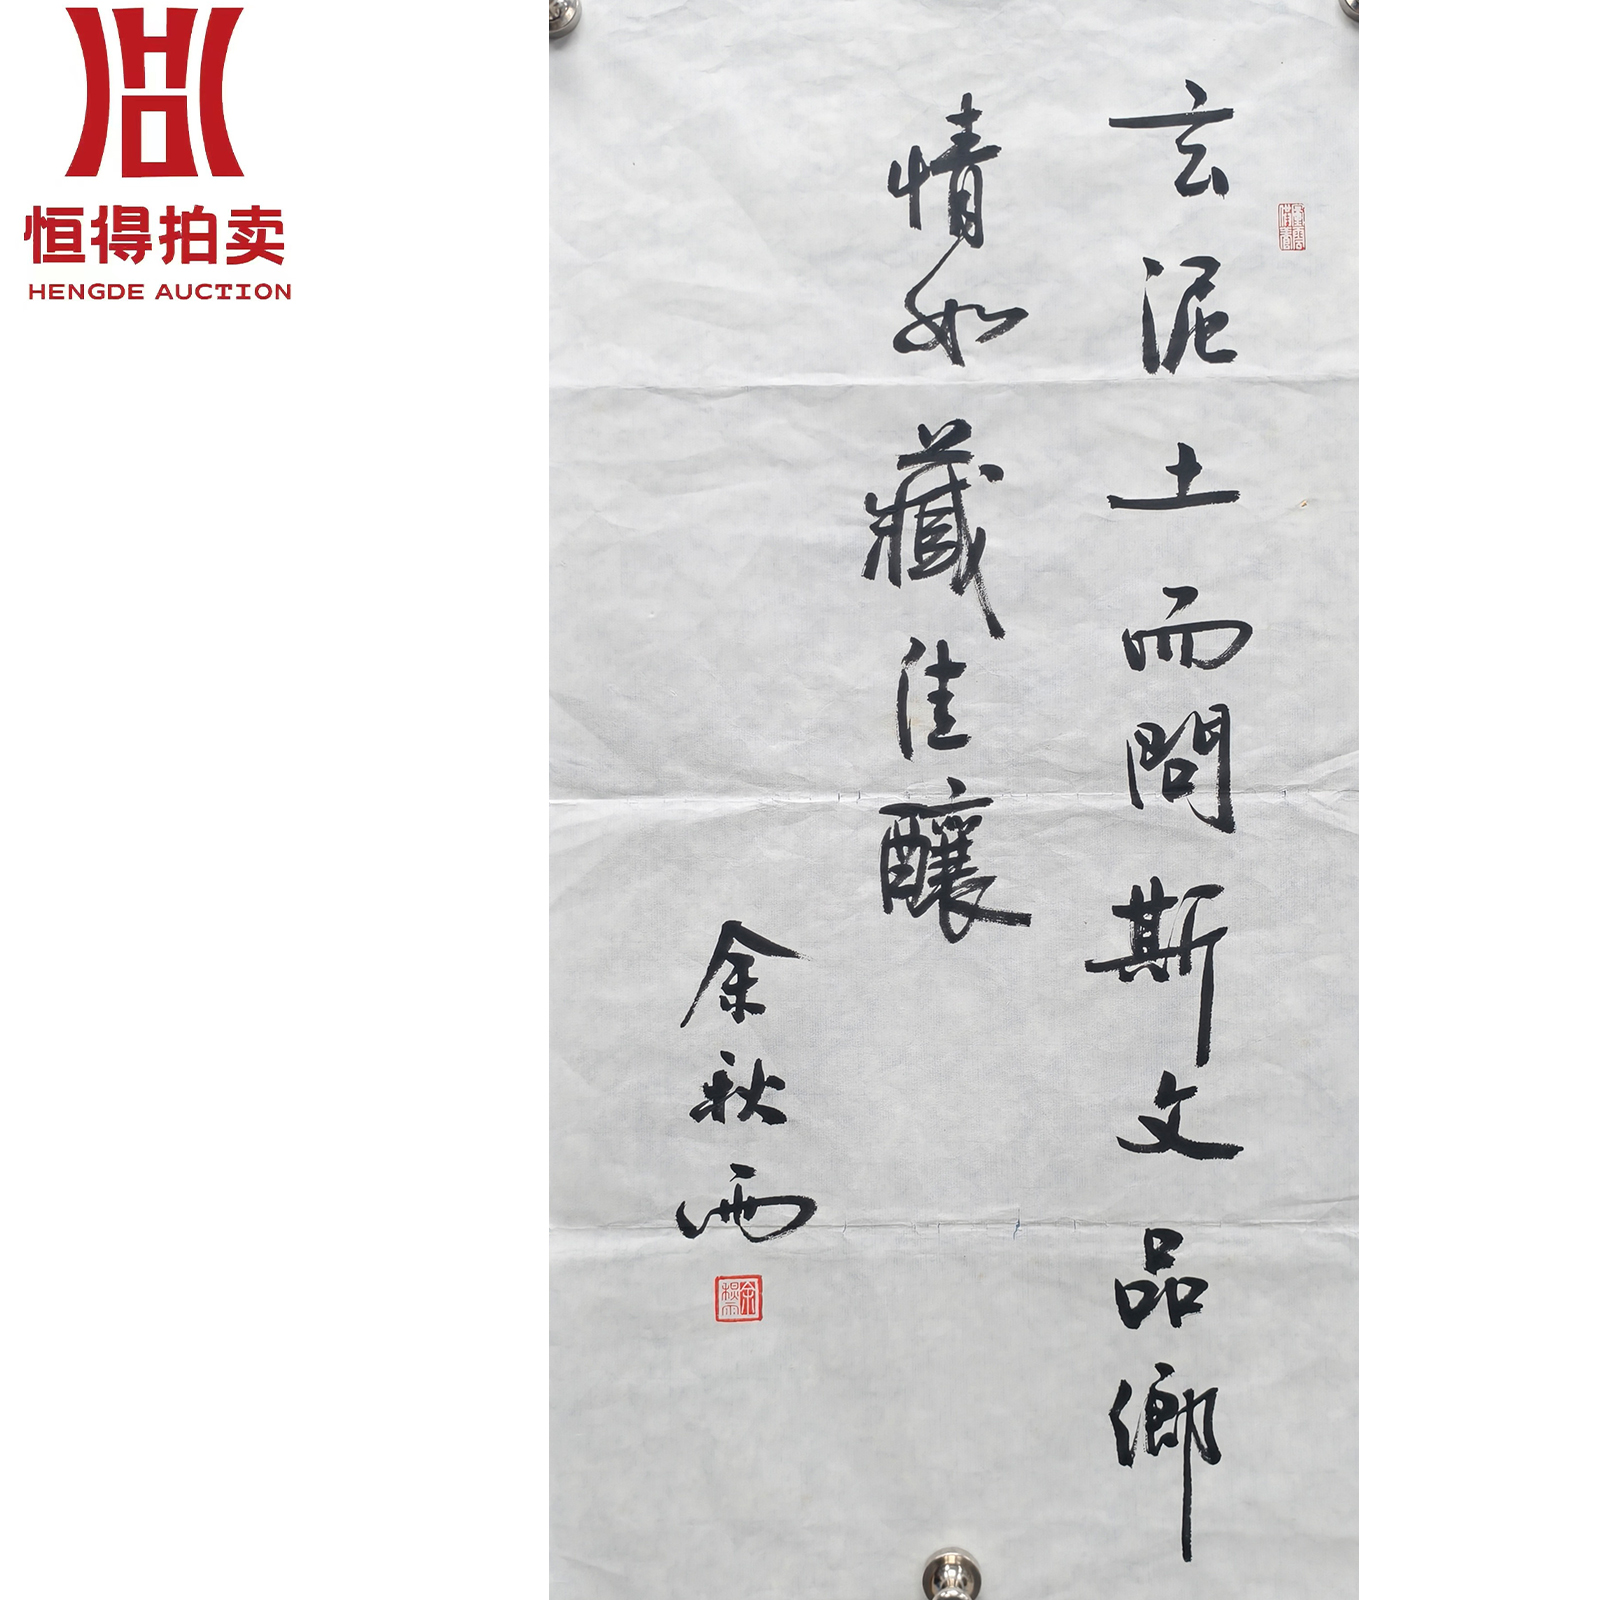 恒得拍卖
HENGDE AUCTION
玄泥土而問斯文品鄉
情如藏佳釀
余秋雨
余秋雨